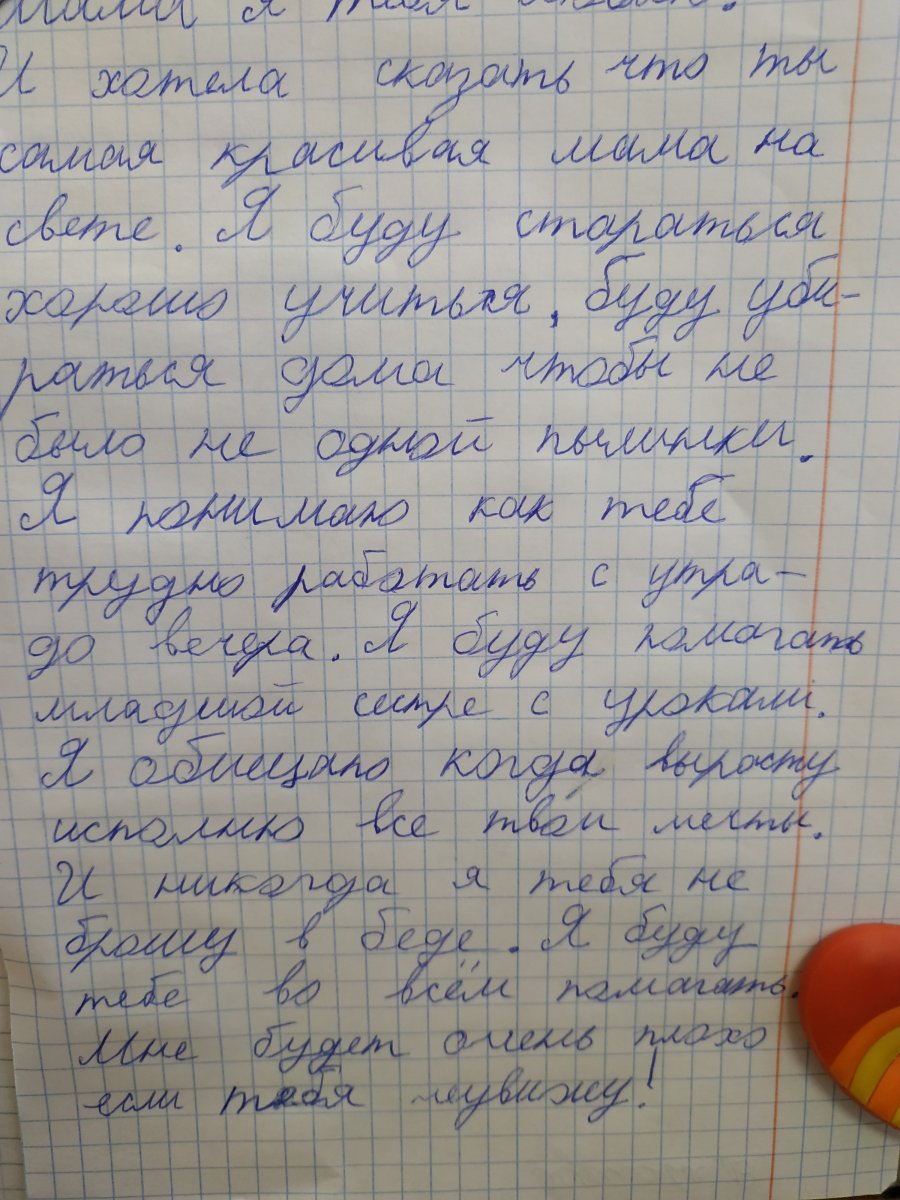 мама я тебя
И хотела сказать что ты
самая красивая мама на
свете. Я буду стараться
хорошо учиться, буду уби-
раться дома чтобы не
было не одной пылинки.
Я понимаю как тебе
трудно работать с утра-
до вечера. Я буду помагать
младшой сестре с уроками.
Я обищаю когда вырасту
исполню все твои мечты.
И никогда я тебя не
брошу в беде. Я буду
тебе во всём помагать.
Мне будет очень плохо
если тебя неувижу!